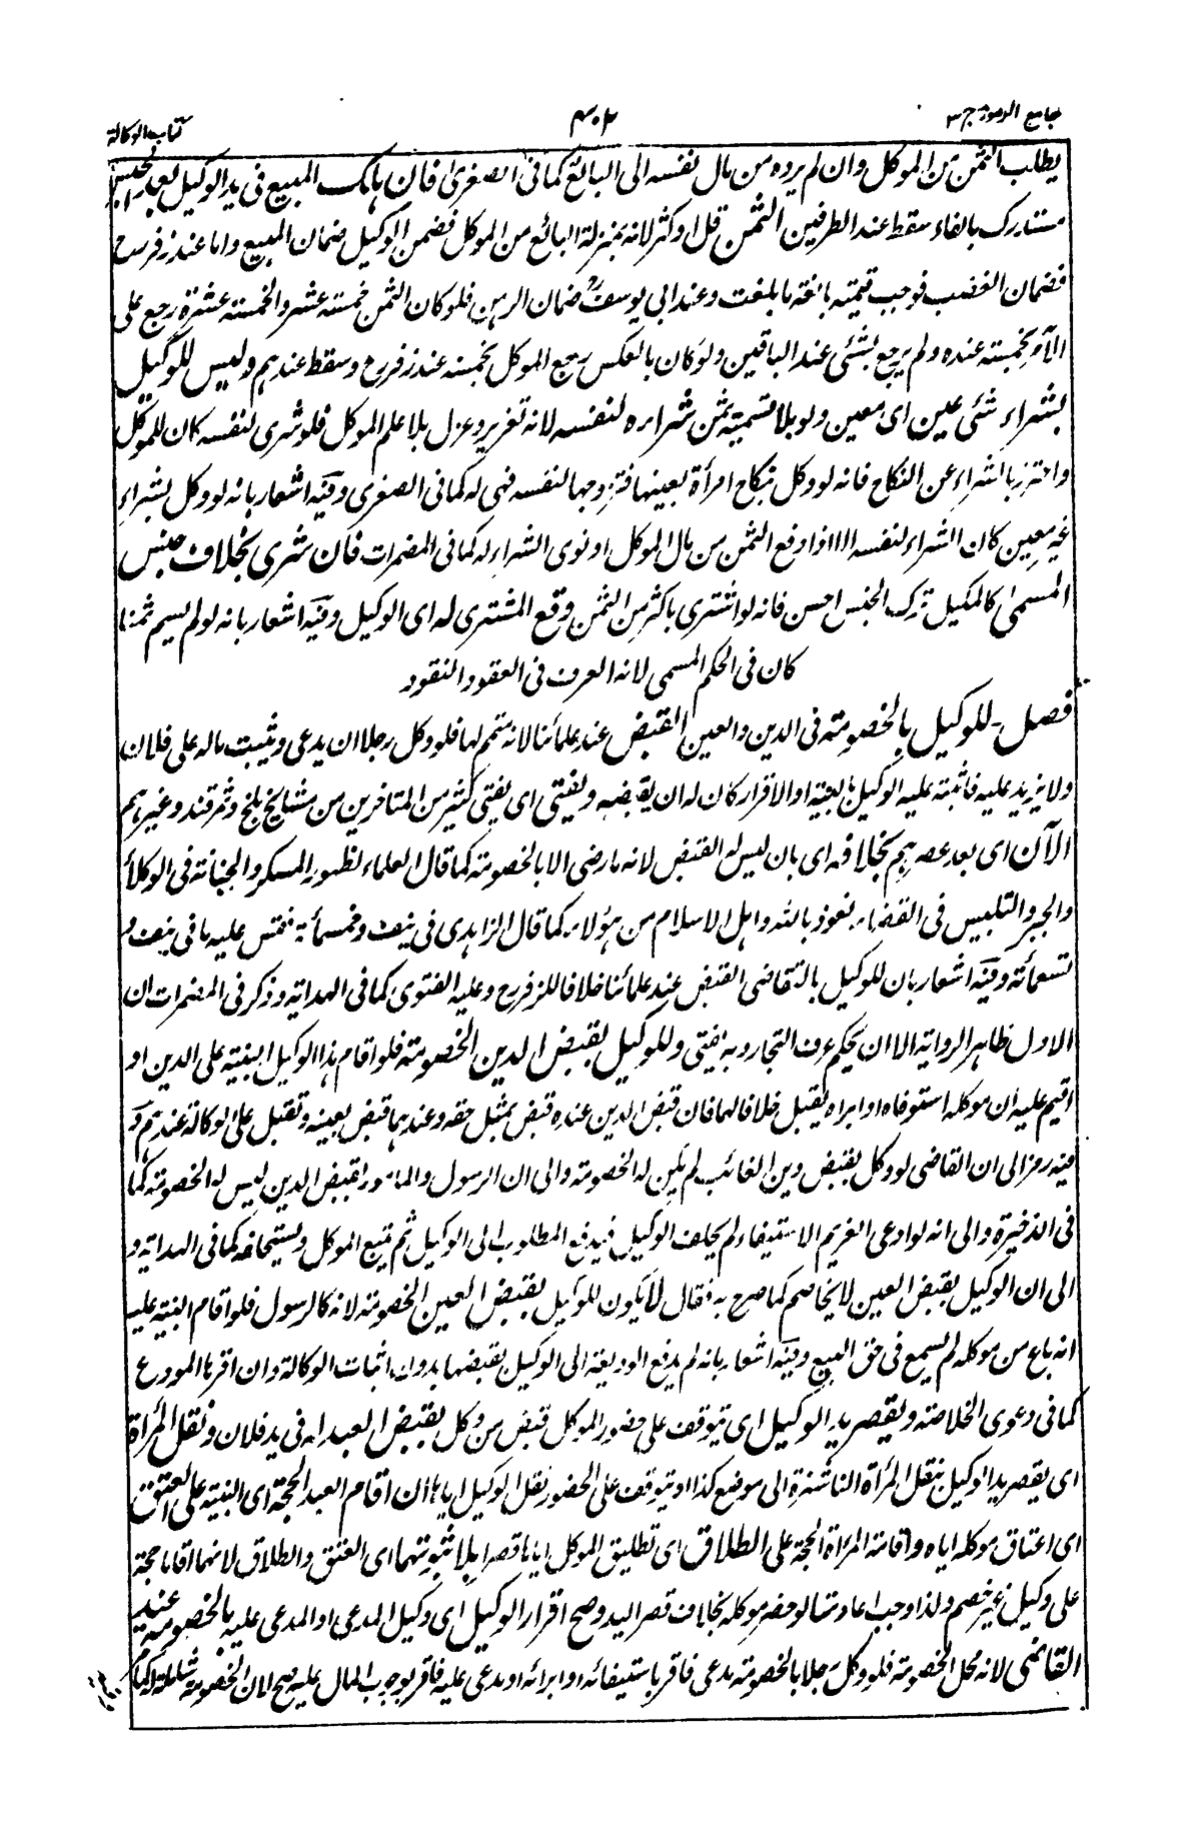 جامع الرموز ج ٣
٤٠٢
كتاب الوكالة
يطلب الثمن من الموكل وان لم يرده من مال نفسه الى البائع كما فى الصغرى فان هلك المبيع فى يد الوكيل بعد الحبس
مستدرك بالفاء سقط عند الطرفين الثمن قل او كثر لانه بمنزلة البائع من الموكل فضمن الوكيل ضمان المبيع واما عند زفر رح
فضمان الغضب فوجب قيمته بالغة ما بلغت وعند ابى يوسف رح ضمان الرهن فلو كان الثمن خمسة عشر والخمسة عشرة رجع على
الآمر بخمسة عنده ولم يرجع بشئى عند الباقين ولو كان بالعكس رجع الموكل بخمسة عند زفر رح وسقط عندهم وليس للوكيل
بشراء شئى عين اى معين ولو بلا تسمية ثمن شراره لنفسه لانه تغرير وعزل بلا علم الموكل فلو شرى لنفسه كان للموكل
واحترز بالشراء عن النكاح فانه لو وكل بنكاح امرأة بعينها فتزوجها لنفسه فهى له كما فى الصغرى وفيه اشعار بانه لو وكل بشراء
غير معين كان الشراء لنفسه الا اذا دفع الثمن من مال الموكل او نوى الشراء له كما فى المضمرات فان شرى بخلاف جنس
المسمى كالمكيل ترك الجنس احسن فانه لو اشترى باكثر من الثمن وقع المشترى له اى الوكيل وفيه اشعار بانه لو لم يسم ثمنا
كان فى الحكم المسمى لانه العرف فى العقود النقود
فصل - للوكيل بالخصومة فى الدين والعين القبض عند علمائنا لانه متمم لها فلو وكل رجلا ان يدعى ويثبت ماله على فلان
ولا يزيد عليه فاثبته عليه الوكيل بالبينة او الاقرار كان له ان يقبضه ويفتى اى يفتى كثير من المتاخرين من مشايخ بلخ وسمرقند وغيرهم
الآن اى بعد عصرهم بخلافه اى بان ليس له القبض لانه ما رضى الا بالخصومة كما قال العلماء لظهور المسكر والخيانة فى الوكلأ
والجبر والتلبيس فى القضاء نعوذ بالله واهل الاسلام من هؤلاء كما قال الزاهدى فى نيف وخمسمأية فقس عليه ما فى نيف و
تسعمائة وفيه اشعار بان للوكيل بالتقاضى القبض عند علمائنا خلافا للزفر رح وعليه الفتوى كما فى الهداية وذكر فى المضمرات ان
الاول ظاهر الرواية الا ان يحكم عرف التجار وبه يفتى وللوكيل بقبض الدين الخصومة فلو اقام هذا الوكيل البينة على الدين او
اقيم عليه ان موكله استوفاه او ابراه يقبل خلافا لهما فان قبض الدين عنده قبض بمثل حقه وعندهما قبض بعينه وتقبل على الوكالة عندهم و
فيه رمز الى ان القاضى لو وكل بقبض دين الغائب لم يكن له الخصومة والى ان الرسول والمامور بقبض الدين ليس له الخصومة كما
فى الذخيرة والى انه لو ادعى الغريم الاستيفاء لم يحلف الوكيل فيدفع المطلوب الى الوكيل ثم يتبع الموكل ويستحلفه كما فى الهداية و
الى ان الوكيل بقبض العين لا يخاصم كما صرح به فقال لا يكون للوكيل بقبض العين الخصومة لانه كالرسول فلو اقام البينة عليه
انه باع من موكله لم يسمع فى حق البيع وفيه اشعار بانه لم يدفع الوديعة الى الوكيل بقبضها بدون اثبات الوكالة وان اقر بها المودع
كما فى دعوى الخلاصة ويقصر يد الوكيل اى يتوقف على حضور الموكل قبض من وكل بقبض العبد له فى يد فلان ونقل المرأة
اى يقصر يد الوكيل بنقل المرأة الناشزة الى موضع كذا او يتوقف على الحضور نقل الوكيل اياها ان اقام العبد الحجة اى البينة على العتق
اى اعتاق موكله اياه واقامة المرأة الحجة على الطلاق اى تطليق الموكل اياها قصرا بلا ثبوتهما اى العتق والطلاق لانهما اقاما حجة
على وكيل غير خصم ولذا وجب اعادتها لو حضر موكله بخلاف قصر اليد وصح اقرار الوكيل اى وكيل المدعى او المدعى عليه بالخصومة عند
القاضى لانه محل الخصومة فلو وكل رجلا بالخصومة يدعى فاقر باستيفائه او ابرائه او يدعى عليه فاقر بوجوب المال عليه صح لان الخصومة شاملة له كما